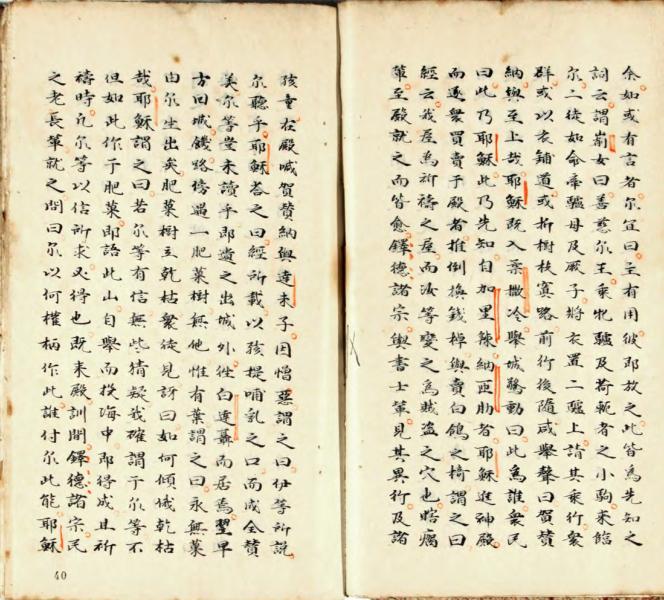 余如或有言者尔宜曰主有用彼即放之此皆為先知之
詞云謂女曰善慈尔王乘牝驢及荷軛者之小駒来臨
尔二徒如命牽驢母及厥子將衣置二驢上請其乘行衆
群或以衣鋪道或折樹枝寘路前行後隨咸舉聲曰賀賛
納與至上哉耶穌既入柔撒冷舉城驚動曰此為誰衆民
曰此乃耶穌此乃先知自加里陳納匝肋者耶穌進神殿
而逐衆買賣于殿者推倒換錢棹與賣白鴿之椅謂之曰
經云我屋為祈禱之屋而汝等變之為賊盜之穴也瞎瘸
輩至殿就之而皆愈鐸德諸宗與書士輩見其異行及諸
孩童在殿喊賀賛納與達未子因憎惡謂之曰伊等所說
尔聽乎耶穌荅之曰經所載以孩提哺乳之口而成全賛
美尔等豈未讀乎即遺之出城外徃白達聶而居焉翌早
方回城饑路傍遇一肥菓樹無他惟有葉謂之曰永無菓
由尔生出矣肥菓樹立乾枯衆徒見訝曰如何傾俄乾枯
哉耶穌謂之曰若尔等有信無些猜疑我確謂于尔等不
但如此作于肥菓即語此山自舉而投海中即得成且祈
禱時凢尔等以信所求必得也既来殿訓間鐸德諸宗民
之老長輩就之問曰尔以何權柄作此誰付尔此能耶穌
40